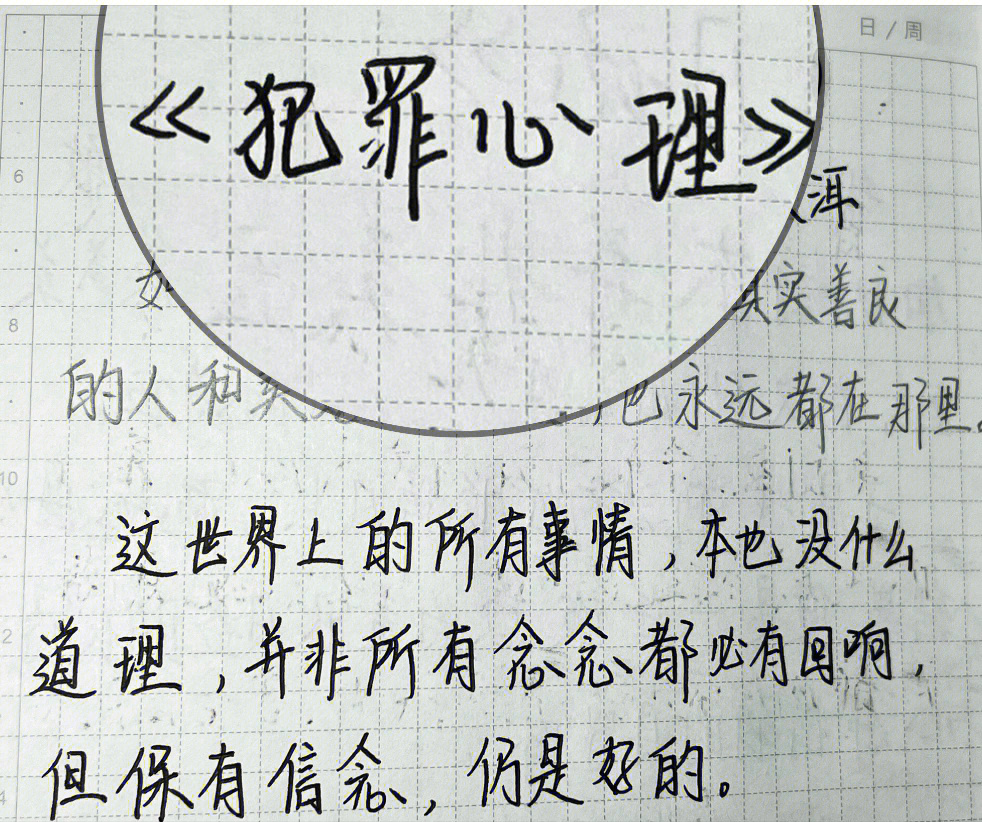 日/周
《犯罪心理》
洱
6
实善良
8
的人和 也永远都在那里。
10
这世界上的所有事情,本也没什么
道理,并非所有念念都必有回响,
2
但保有信念,仍是好的。
4